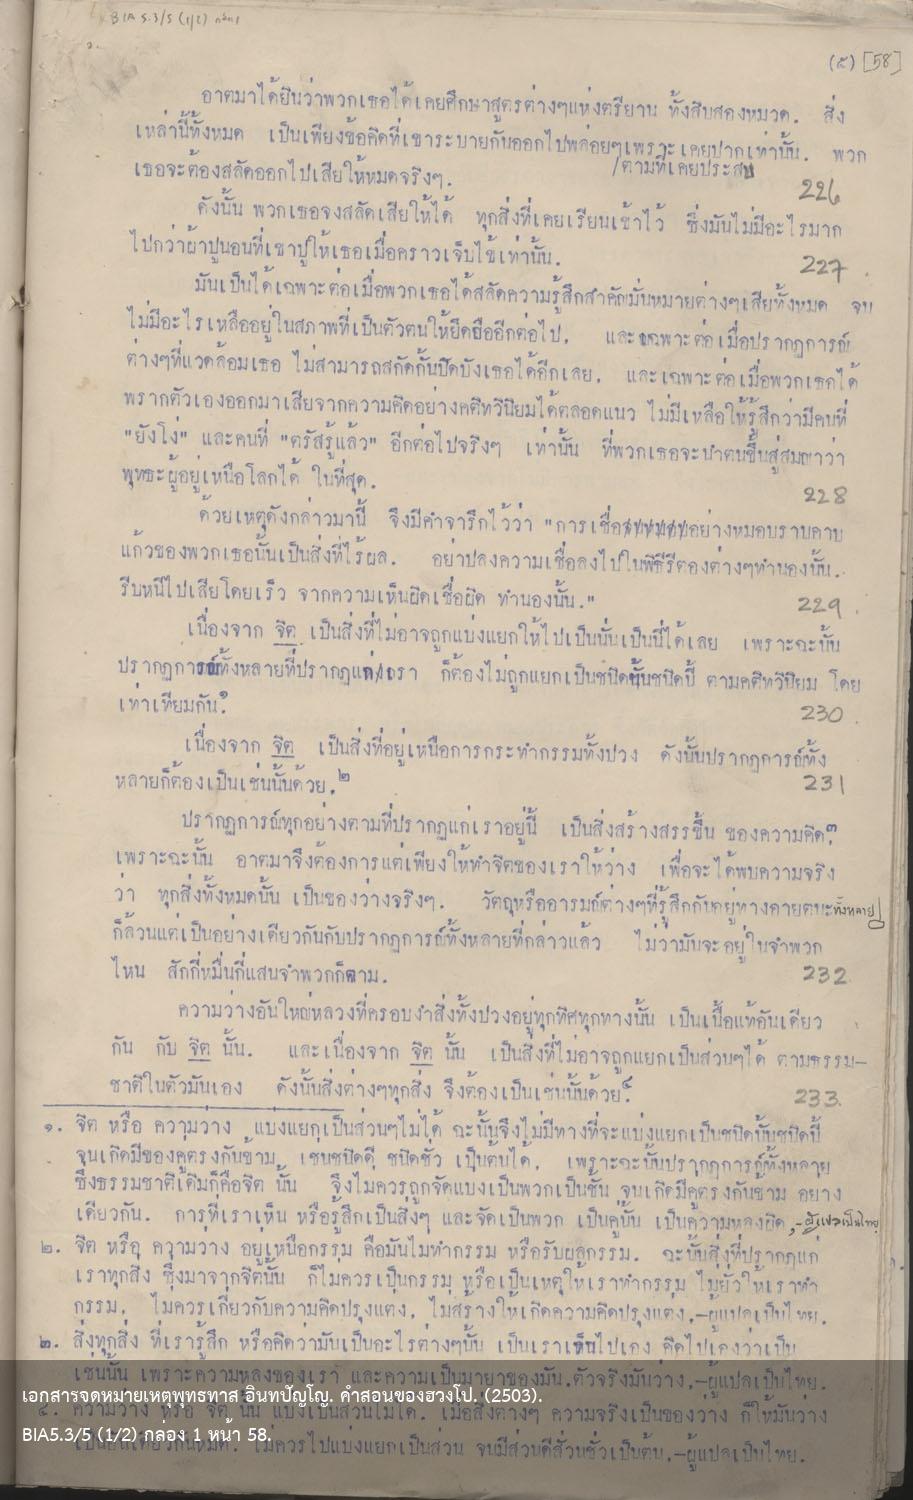 BIA 5.3/5 (1/2) กล่อง 1
(๕) [58]
อาตมาได้ยินว่าพวกเธอได้เคยศึกษาสูตรต่างๆแห่งตรียาน ทั้งสิบสองหมวด. สิ่ง
เหล่านี้ทั้งหมด เป็นเพียงข้อคิดที่เขาระบายกันออกไปพล่อยๆเพราะเคยปากเท่านั้น. พวก
/ตามที่เคยประสบ
เธอจะต้องสลัดออกไปเสียให้หมดจริงๆ.
226
ดังนั้น พวกเธอจงสลัดเสียให้ได้ ทุกสิ่งที่เคยเรียนเข้าไว้ ซึ่งมันไม่มีอะไรมาก
ไปกว่าผ้าปูนอนที่เขาปูให้เธอเมื่อคราวเจ็บไข้เท่านั้น.
227
มันเป็นได้เฉพาะต่อเมื่อพวกเธอได้สลัดความรู้สึกสำคัญมั่นหมายต่างๆเสียทั้งหมด จน
ไม่มีอะไรเหลืออยู่ในสภาพที่เป็นตัวตนให้ยึดถืออีกต่อไป, และเฉพาะต่อเมื่อปรากฏการณ์
ต่างๆที่แวดล้อมเธอ ไม่สามารถสกัดกั้นปิดบังเธอได้อีกเลย, และเฉพาะต่อเมื่อพวกเธอได้
พรากตัวเองออกมาเสียจากความคิดอย่างคติทวินิยมได้ตลอดแนว ไม่มีเหลือให้รู้สึกว่ามีคนที่
"ยังโง่" และคนที่ "ตรัสรู้แล้ว" อีกต่อไปจริงๆ เท่านั้น ที่พวกเธอจะนำตนขึ้นสู่สมญาว่า
พุทธะผู้อยู่เหนือโลกได้ ในที่สุด.
228
ด้วยเหตุดังกล่าวมานี้ จึงมีคำจารึกไว้ว่า "การเชื่ออย่างหมอบราบคาบ
แก้วของพวกเธอนั้นเป็นสิ่งที่ไร้ผล. อย่าปลงความเชื่อลงไปในพิธีรีตองต่างๆทำนองนั้น.
รีบหนีไปเสียโดยเร็ว จากความเห็นผิดเชื่อผิด ทำนองนั้น."
229
เนื่องจาก จิต เป็นสิ่งที่ไม่อาจถูกแบ่งแยกให้ไปเป็นนั่นเป็นนี่ได้เลย เพราะฉะนั้น
ปรากฏการณ์ทั้งหลายที่ปรากฏแก่เรา ก็ต้องไม่ถูกแยกเป็นชนิดนั้นชนิดนี้ ตามคติทวินิยม โดย
เท่าเทียมกัน.๑
230
เนื่องจาก จิต เป็นสิ่งที่อยู่เหนือการกระทำกรรมทั้งปวง ดังนั้นปรากฏการณ์ทั้ง
หลายก็ต้องเป็นเช่นนั้นด้วย.๒
231
ปรากฏการณ์ทุกอย่างตามที่ปรากฏแก่เราอยู่นี้ เป็นสิ่งสร้างสรรขึ้น ของความคิด.๓
เพราะฉะนั้น อาตมาจึงต้องการแต่เพียงให้ทำจิตของเราให้ว่าง เพื่อจะได้พบความจริง
ว่า ทุกสิ่งทั้งหมดนั้น เป็นของว่างจริงๆ. วัตถุหรืออารมณ์ต่างๆที่รู้สึกกันอยู่ทางอายตนะทั้งหลาย
ก็ล้วนแต่เป็นอย่างเดียวกันกับปรากฏการณ์ทั้งหลายที่กล่าวแล้ว ไม่ว่ามันจะอยู่ในจำพวก
ไหน สักกี่หมื่นกี่แสนจำพวกก็ตาม.
232
ความว่างอันใหญ่หลวงที่ครอบงำสิ่งทั้งปวงอยู่ทุกทิศทุกทางนั้น เป็นเนื้อแท้อันเดียว
กัน กับ จิต นั้น. และเนื่องจาก จิต นั้น เป็นสิ่งที่ไม่อาจถูกแยกเป็นส่วนๆได้ ตามธรรม-
ชาติในตัวมันเอง ดังนั้นสิ่งต่างๆทุกสิ่ง จึงต้องเป็นเช่นนั้นด้วย.๔
233
๑. จิต หรือ ความว่าง แบ่งแยกเป็นส่วนๆไม่ได้ ฉะนั้นจึงไม่มีทางที่จะแบ่งแยกเป็นชนิดนั้นชนิดนี้
จนเกิดมีของคู่ตรงกันข้าม เช่นชนิดดี ชนิดชั่ว เป็นต้นได้. เพราะฉะนั้นปรากฏการณ์ทั้งหลาย
ซึ่งธรรมชาติเดิมก็คือจิต นั้น จึงไม่ควรถูกจัดแบ่งเป็นพวกเป็นชั้น จนเกิดมีคู่ตรงกันข้าม อย่าง
เดียวกัน. การที่เราเห็น หรือรู้สึกเป็นสิ่งๆ และจัดเป็นพวก เป็นคู่นั้น เป็นความหลงผิด,-ผู้แปลเป็นไทย
๒. จิต หรือ ความว่าง อยู่เหนือกรรม คือมันไม่ทำกรรม หรือรับผลกรรม. ฉะนั้นสิ่งที่ปรากฏแก่
เราทุกสิ่ง ซึ่งมาจากจิตนั้น ก็ไม่ควรเป็นกรรม หรือเป็นเหตุให้เราทำกรรม ไม่ยั่วให้เราทำ
กรรม, ไม่ควรเกี่ยวกับความคิดปรุงแต่ง, ไม่สร้างให้เกิดความคิดปรุงแต่ง,-ผู้แปลเป็นไทย.
๓. สิ่งทุกสิ่ง ที่เรารู้สึก หรือคิดว่ามันเป็นอะไรต่างๆนั้น เป็นเราเห็นไปเอง คิดไปเองว่าเป็น
เช่นนั้น เพราะความหลงของเรา และความเป็นมายาของมัน.ตัวจริงมันว่าง,-ผู้แปลเป็นไทย.
๔. ความว่าง หรือ จิต นั้น แบ่งเป็นส่วนไม่ได้. เมื่อสิ่งต่างๆ ความจริงเป็นของว่าง ก็ให้มันว่าง
เป็นอันเดียวกันหมด. ไม่ควรไปแบ่งแยกเป็นส่วน จนมีส่วนดีส่วนชั่วเป็นต้น,-ผู้แปลเป็นไทย.
เอกสารจดหมายเหตุพุทธทาส อินทปัญโญ. คำสอนของฮวงโป. (2503).
BIA5.3/5 (1/2) กล่อง 1 หน้า 58.